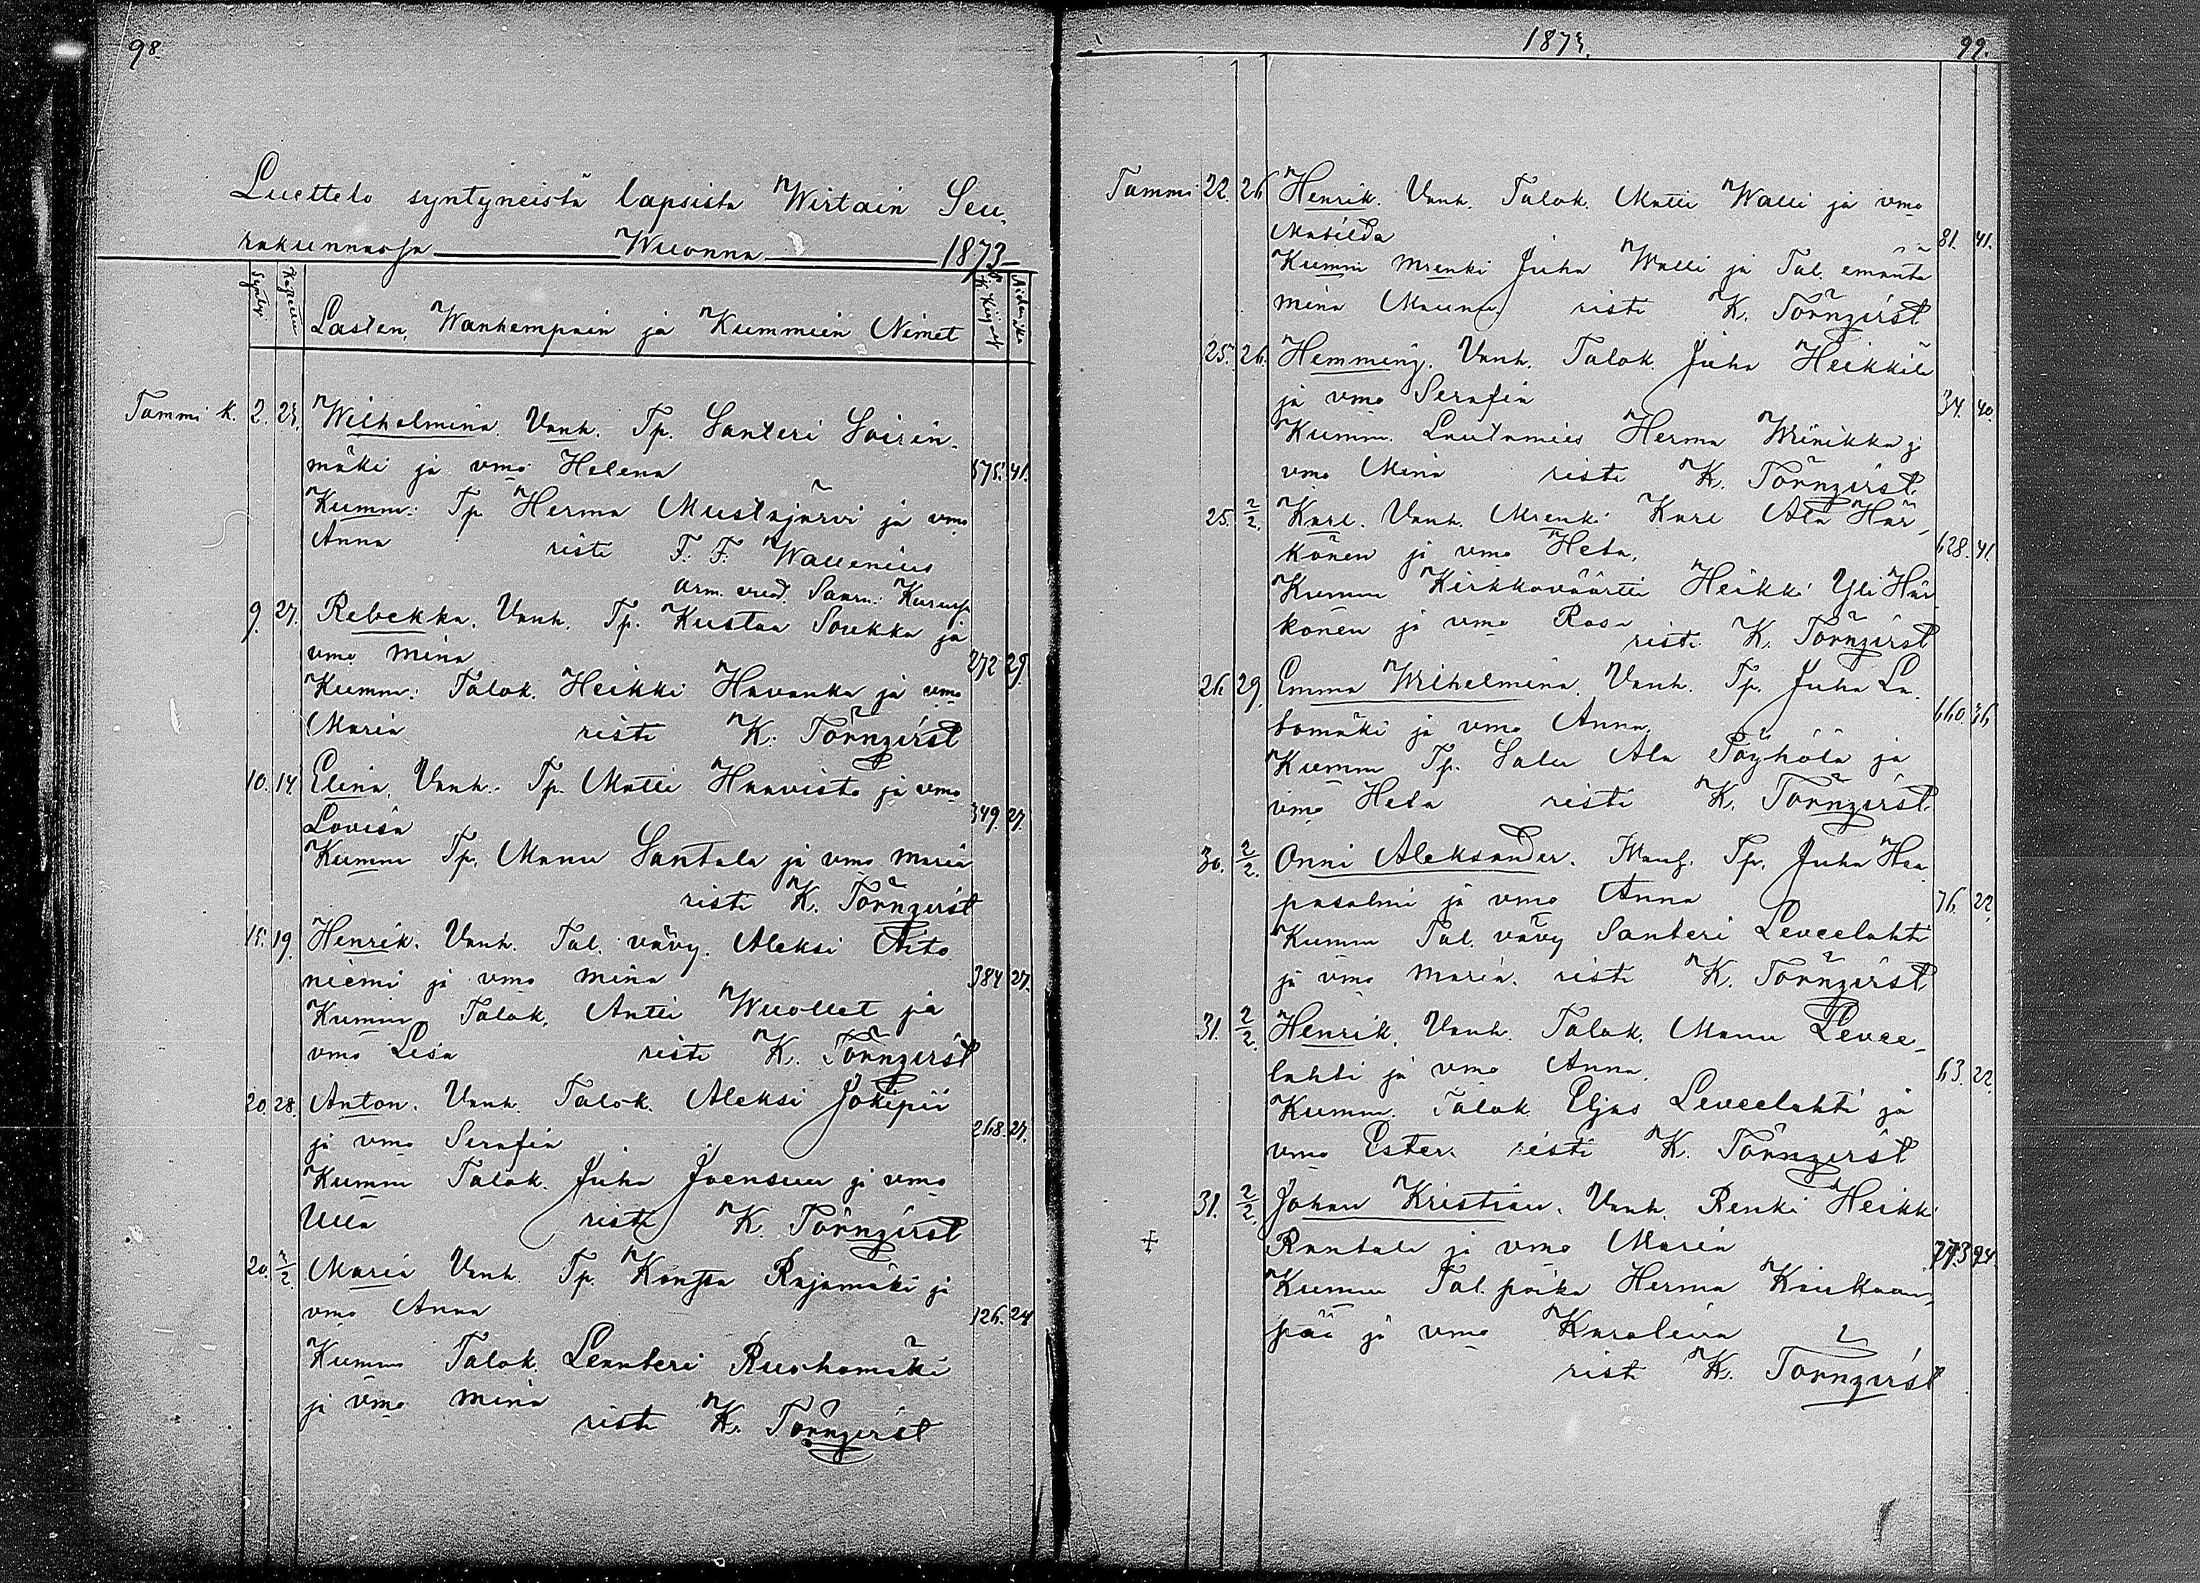 98.
Luettelo syntyneistä lapsista Wirtain Seu-
rakunnassa Wuonna 1873
Syntyi Lasten, Wanhempain ja Kummien Nimet Äiden ikä
Tammi k. 2. 23. Wilhelmina. Vanh. Tp. Santeri Soirin-
mäki ja vmo Helena 575. 41.
Kumm: Tp Herma Mustajärvi ja vmo
Anna risti F. F. Wallenius
arm. vuod. Saarn.
9. 27. Rebekka. Vanh. Tp. Kustaa Soukka ja
vmo Mina 272 29.
Kumm: Talok. Heikki Havanka ja vmo
Maria risti K. Törnqvist
10. 14 Elina. Vanh. Tp. Matti Haavisto ja vmo
Lovisa 349. 27.
Kumm Tp. Manu Santala ja vmo Maria
risti K. Törnqvist
15. 19. Henrik. Vanh. Tal. vävy. Aleksi Aito
niemi ja vmo Mina 384 27.
Kumm Talok. Antti Wuollet ja
vmo Lisa risti K. Törnqvist
20. 28. Anton. Vanh. Talok. Aleksi Jokipii
ja vmo Serafia 268. 27.
Kumm Talok. Juha Joensuu ja vmo
Ulla risti K. Törnqvist
20. 2/2 Maria Vanh. Tp. Konsta Rajamäki ja
vmo Anna 126. 24
Kumm Talok. Leanteri Ruohomäki
ja vmo Mina
risti K. Törnqvist
1873. 99.
Tammi 22. 26 Henrik. Vanh. Talok. Matti Walli ja vmo
Matilda 81. 41.
Kumm Mrenki Juha Walli ja Tal. emäntä
Mina Mauno risti K. Törnqvist
25. 26. Hemming. Vanh. Talok. Juha Heikkilä
ja vmo Serafia 34. 40.
Kumm. Lautamies Herma Wrinikka j
vmo Mina risti K. Törnqvist
25. 2/2. Karl. Vanh. Mrenki Karl Ala Här-
könen ja vmo Heta. 628. 41.
Kumm Kirkkoväärtti Heikki Yli Här
könen ja vmo Rosa
risti K. Törnqvist
26. 29. Emma Wilhelmina. Vanh. Tp. Juha La-
tomäki ja vmo Anna. 660. 36
Kumm Tp. Salu Ala Pöyhölä ja
vmo Heta risti K. Törnqvist
30. 2/2. Onni Aleksander. Vanh. Tp. Juha Haa-
pasalmi ja vmo Anna 76. 22.
Kumm Tal. vävy Santeri Leveelahti
ja vmo Maria. risti K. Törnqvist
31. 2/2. Henrik. Vanh. Talok. Manu Levee-
lahti ja vmo Anna. 63. 22.
Kumm. Talok Eljas Leveelahti ja
vmo Ester. risti K. Törnqvist
31. 2/2. Johan Kristian. Vanh. Renki Heikki
+ Rantala ja vmo Maria 24.
Kumm Tal. poika Herma Kiukaan-
pää ja vmo Karolina
risti K. Törnqvist